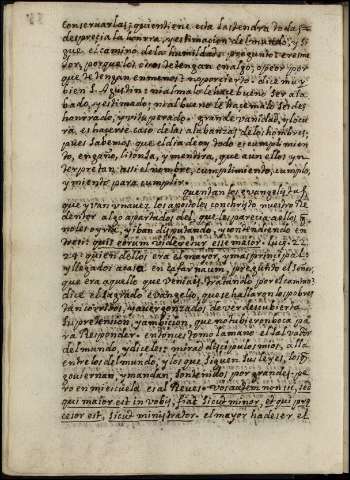 conseruarlas; quien tiene esta las tendra todas
desprecia la honrra, y estimacion del mundo, y si
gue el camino de la humildad: pregunto: eres me
jor, porque los otros te tengan en algo; o peor por
que te tengan en menos: no por cierto. dice muy
bien S. Agustin: ni al malo le hace bueno ser ala
bado, y estimado; ni al bueno le hace malo ser des
honrrado, y vituperado. grande vanidad, y locu
ra, es hacerse caso de las alabanzas de los hombres,
pues sabemos que el dia de oy todo es cumplimien
to, engaño, lisonja, y mentira, que aun ellos yn
terpretan assi el nombre, cumplimiento, cumplo,
y miento para cumplir.
quentan los evangelistas
que yvan una vez los apostoles con christo nuestro Re
dentor algo apartados del, que les parecia a ellos q̃
no les oyria, yiban disputando, y contendiendo en
tre si: quis eorum videretur esse maior. Luc. 22
24. quien dellos era el mayor, y mas principal:
y llegados a casa en cafarnaum, pregunto el señor,
que era aquello que veniais tratando por el camino:
dice el sagrado evangelio, que se hallaron los pobres
tan corridos, y avergonzados de ver descubierta
su pretension, y ambicion, que no tubieron boca pa
ra Responder. entonces toma la mano el Salvador
del mundo y diceles: mirad discipulos mios, alla
entre los del mundo, y los que siguen sus leyes, los q̃
gouiernan, y mandan, son tenidos por grandes, pe
ro en mi escuela es al Reues. vos autem non sic, sed
qui maior est in vobis, fiat sicut minor, et qui præ
cesor est, sicut ministrator. el mayor ha de ser el